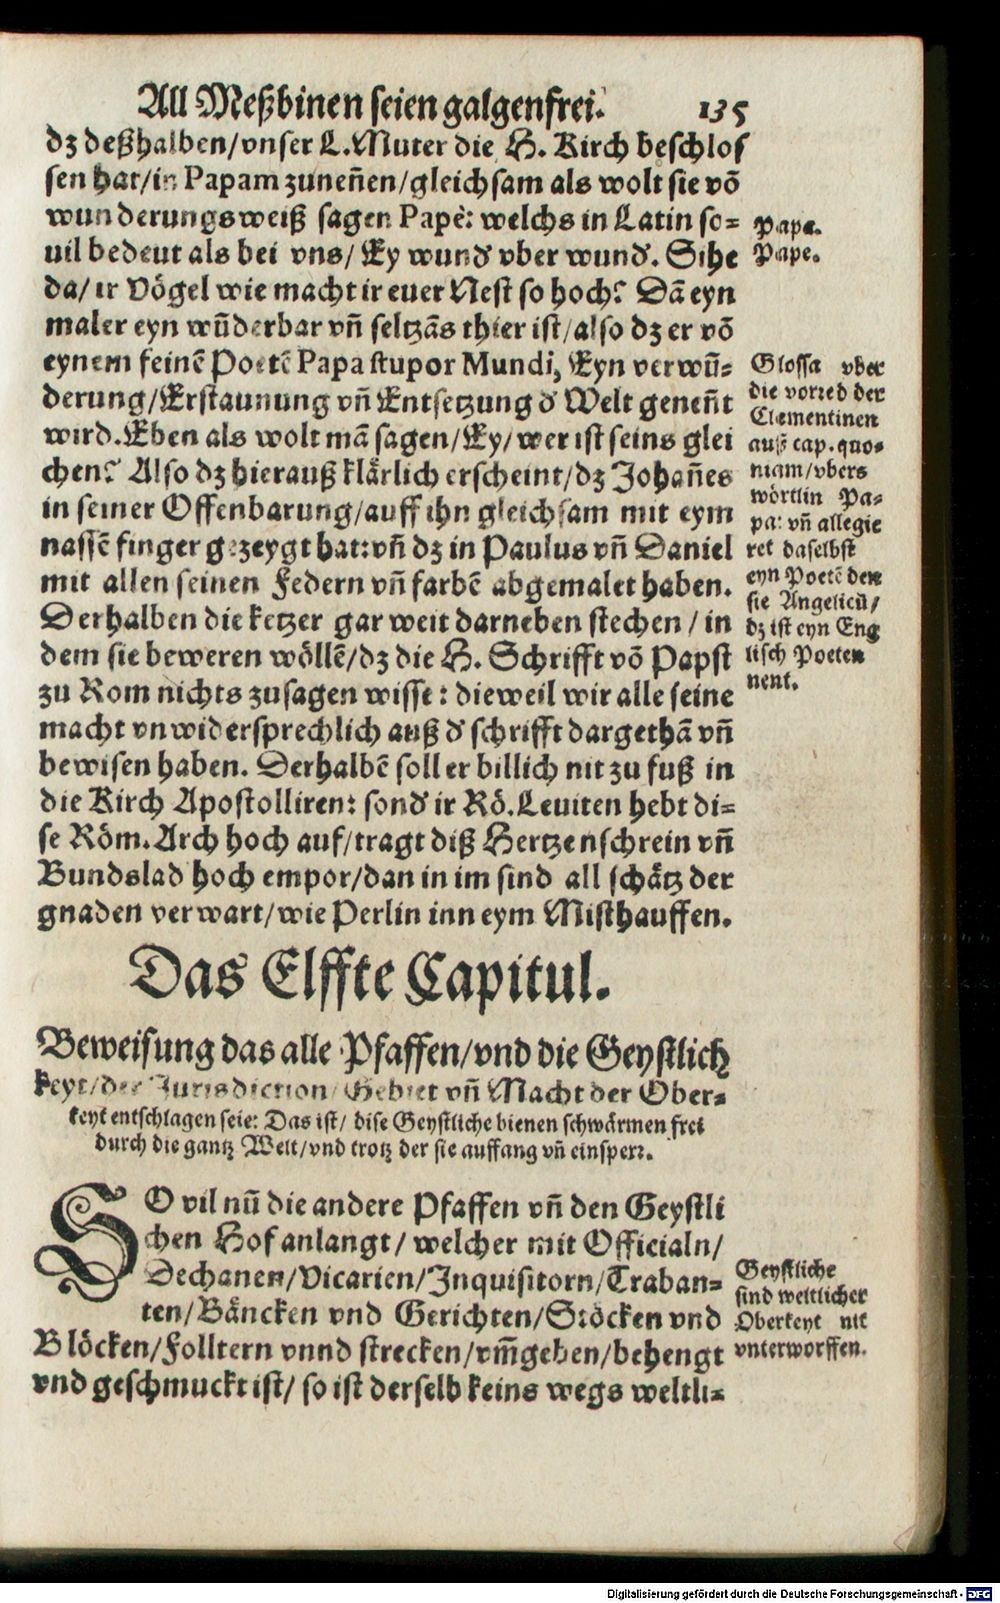 All Meßbinen seien galgenfrei. 135
dz deßhalben/vnser L. Muter die H. Kirch beschlos
sen hat/in Papam zuneñen/gleichsam als wolt sie võ
wunderungsweiß sagen Papè: welchs in Latin so=
uil bedeut als bei vns/ Ey wund vber wund. Sihe
da/ ir Vögel wie macht ir euer Nest so hoch? Dã eyn
maler eyn wũderbar vñ seltzãs thier ist/also dz er võ
eynem feinẽ Poetẽ Papa stupor Mundi, Eyn verwũ=
derung/Erstaunung vñ Entsetzung d' Welt geneñt
wird. Eben als wolt mã sagen/Ey/wer ist seins glei
chen? Also dz hierauß klärlich erscheint/dz Johañes
in seiner Offenbarung/auff ihn gleichsam mit eym
nassẽ finger gezeygt hat: vñ dz in Paulus vñ Daniel
mit allen seinen Federn vñ farbẽ abgemalet haben.
Derhalben die ketzer gar weit darneben stechen / in
dem sie beweren wöllẽ/dz die H. Schrifft võ Papst
zu Rom nichts zusagen wisse: dieweil wir alle seine
macht vnwidersprechlich auß d' schrifft dargethã vñ
bewisen haben. Derhalbẽ soll er billich nit zu fuß in
die Kirch Apostolliren: sond' ir Rö. Leuiten hebt di=
se Röm. Arch hoch auf/tragt diß Hertzenschrein vñ
Bundslad hoch empor/dan in im sind all schätz der
gnaden verwart/wie Perlin inn eym Misthauffen.
Pape.
Pape.
Glossa vber
die vorred der
Clementinen
auß cap. quo=
niam/vbers
wörtlin Pa=
pa: vñ allegie
ret daselbst
eyn Poetẽ den
sie Angelicũ/
dz ist eyn Eng
lisch Poeten
nent.
Das Elffte Capitul.
Beweisung das alle Pfaffen/vnd die Geystlich
keyt/der Jurisdiction/Gebiet vñ Macht der Ober=
keyt entschlagen seie: Das ist/ dise Geystliche bienen schwärmen frei
durch die gantz Welt/vnd trotz der sie auffang vñ einsperr.
SO vil nũ die andere Pfaffen vñ den Geystli
chen Hof anlangt/ welcher mit Officialn/
Dechanen/Vicarien/Inquisitorn/Traban=
ten/Bäncken vnd Gerichten/Stöcken vnd
Blöcken/Folltern vnnd strecken/vm̃geben/behengt
vnd geschmuckt ist/ so ist derselb keins wegs weltli=
Geystliche
sind weltlicher
Oberkeyt nit
vnterworffen.
Digitalisierung gefördert durch die Deutsche Forschungsgemeinschaft - DFG